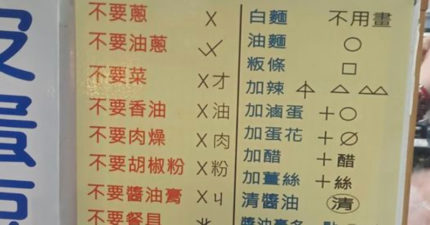 不要蔥 X
不要油蔥
不要菜 X才
不要香油 X油
不要肉燥 X肉
不要胡椒粉 X粉
不要醬油膏 X丩
不要餐具
白麵 不用畫
油麵 ○
粄條 □
加辣 小 △ △△
加滷蛋 +○
加蛋花 +∅
加醋 +醋
加薑絲 +絲
清醬油 清
醬油膏多
皮蛋